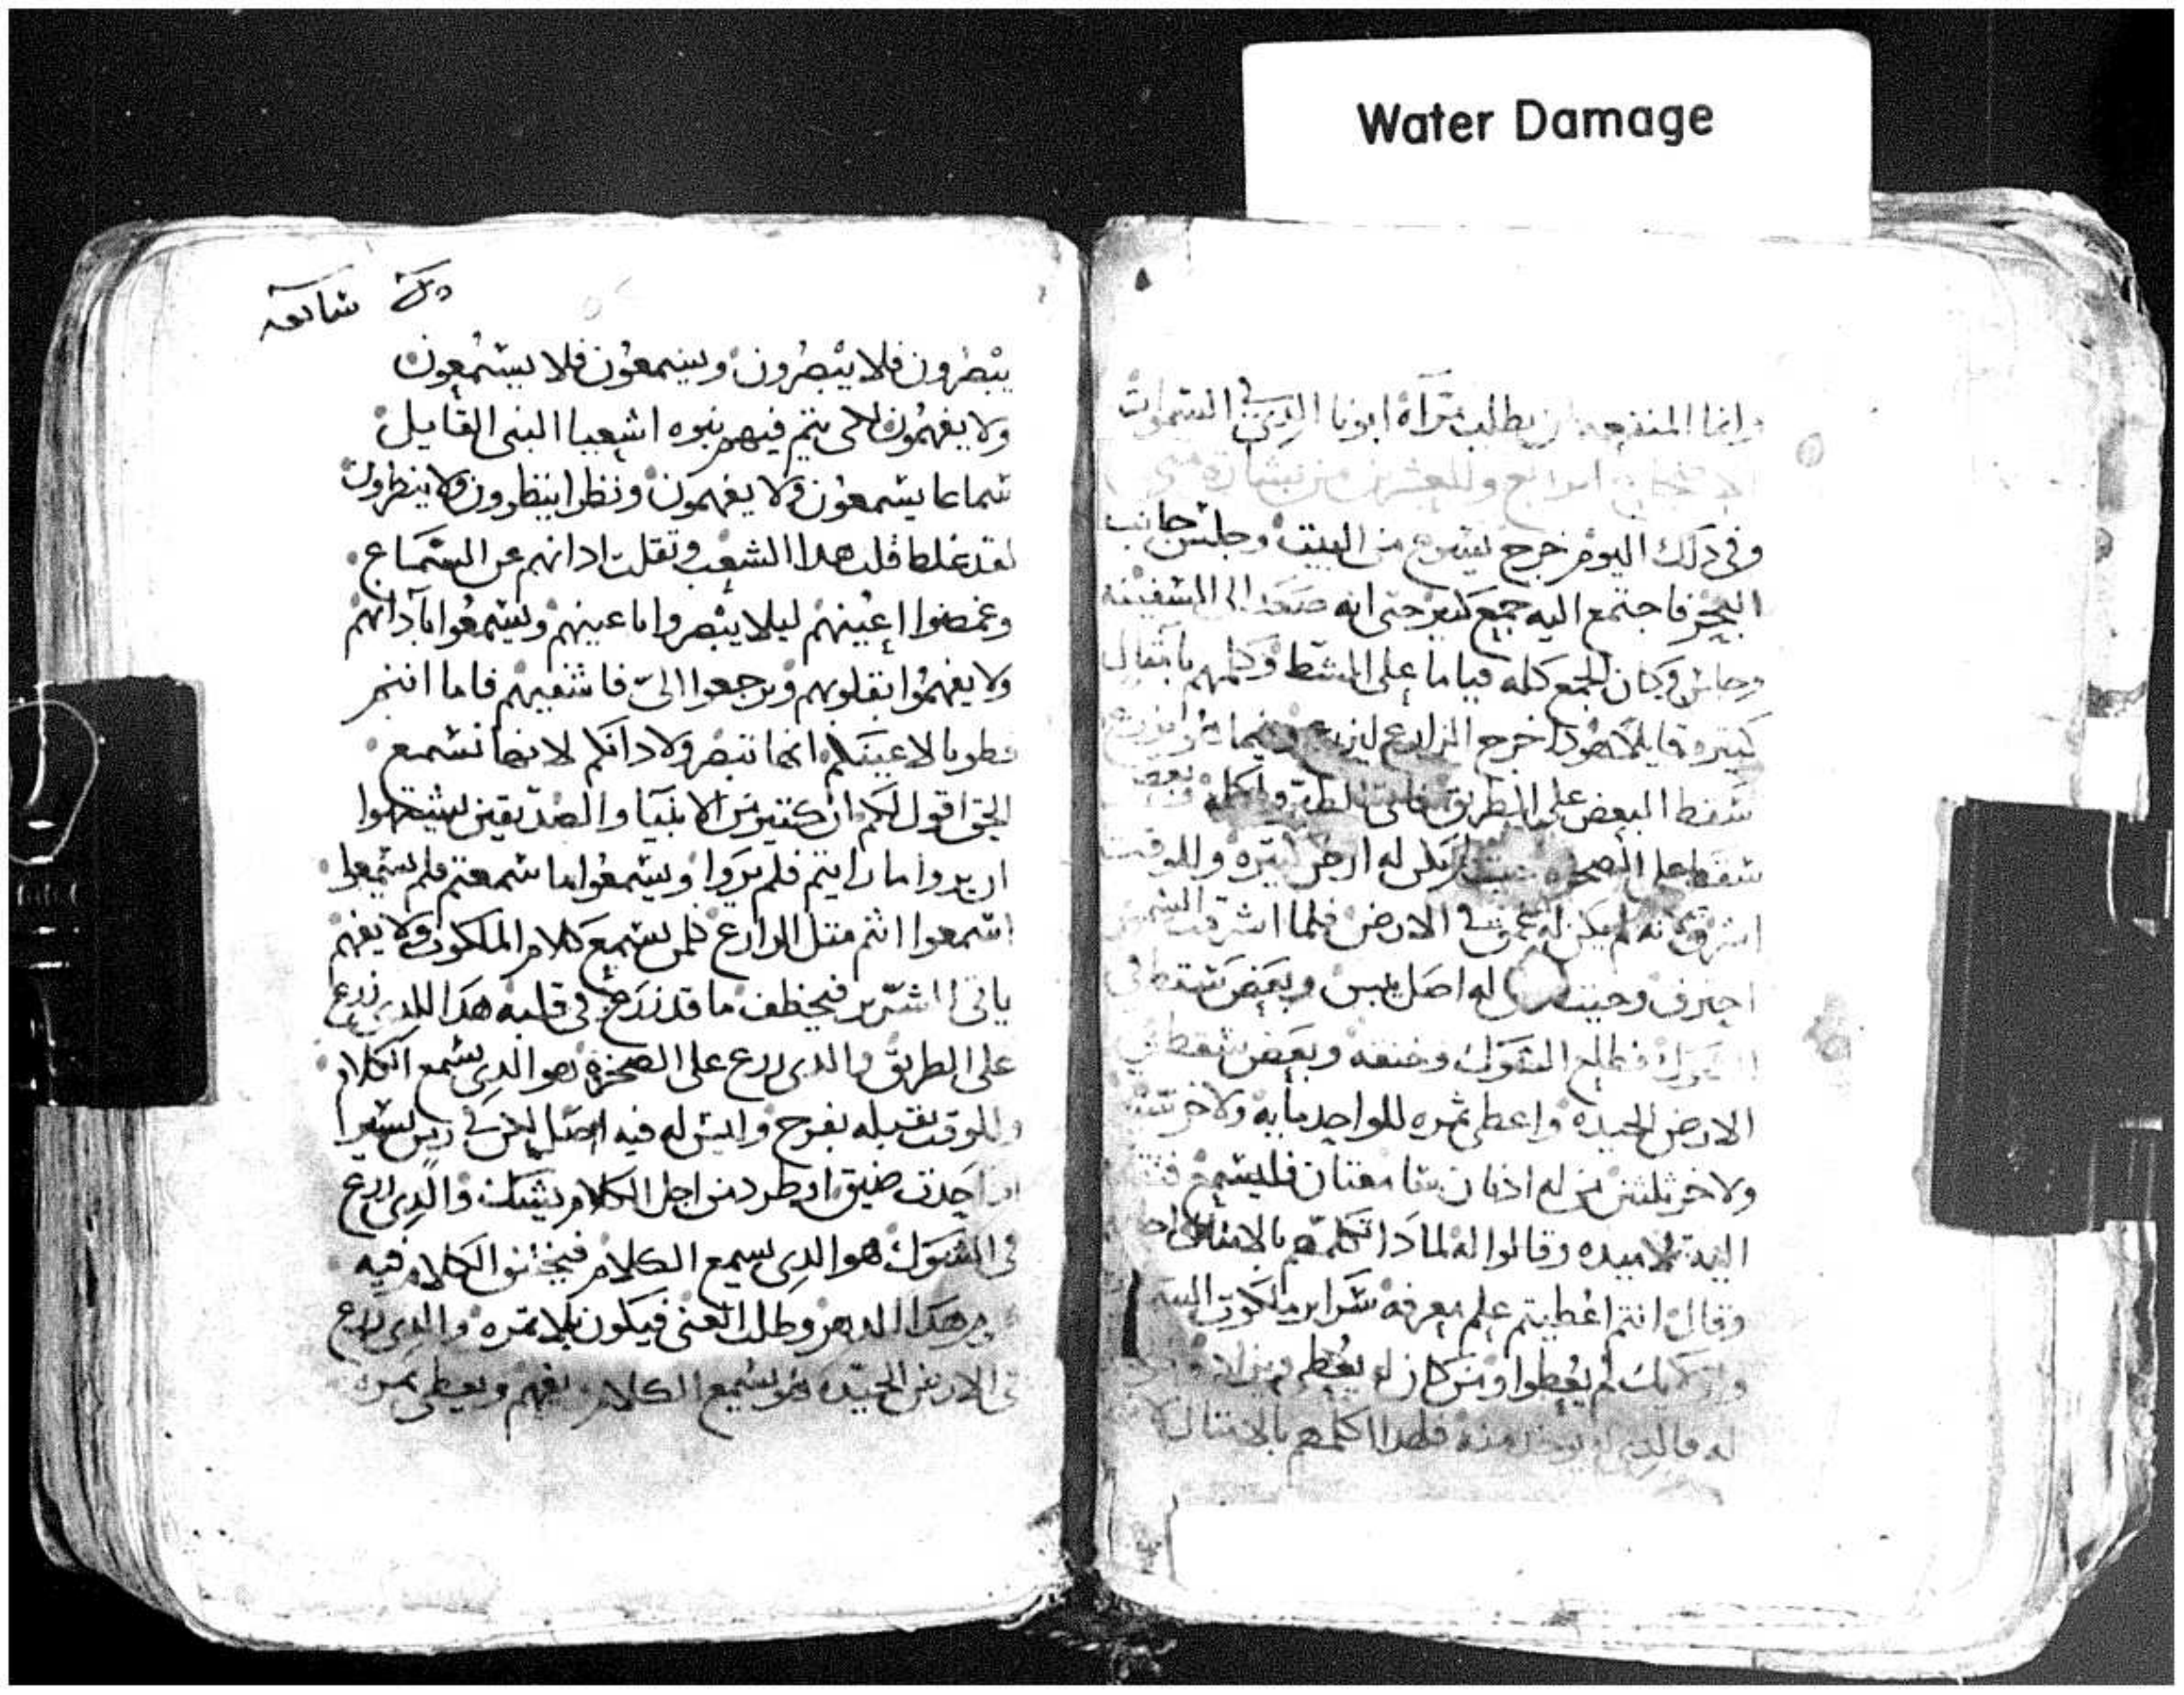 Water Damage
وانما المنفعه يطلب مرآة ابونا الدي في السموات
الرابع والعشرين من بشارة متى
وفي دلك اليوم خرج يسوع من البيت وجلس جانب
البحر فاجتمع اليه جمع كتير حتى انه صعد الى السفينه
وجلس وكان الجمع كله قياما على الشط وكلمهم بامتال
كتيره قايلا هودا خرج الزارع ليزرع وفيما هو يزرع
سقط البعض على الطريق فاتى الطير واكله وبعض
سقط على الصخره حيت لم يكن له ارض كتيره وللوقت
اشرق لانه لم يكن له عمق في الارض فلما اشرقت الشمس
احترق وحيت له اصل يبس وبعض سقط في
الشوك فطلع الشوك وخنقه وبعض سقط في
الارض الجيده واعطى تمره للواحد مايه ولاخر ستين
ولاخر تلتين من له ادنان سامعتان فليسمع
اليه تلاميده وقالوا له لمادا تكلمهم بالامتال
وقال انتم اعطيتم علم معرفة سراير ملكوت
اوليك لم يعطوا ومن كان له يعطى ويزاد
له فالدي يوخد منه فلهدا اكلمهم بالامتال
يبصرون فلا يبصرون ويسمعون فلا يسمعون
ولا يفهمون لكي يتم فيهم نبوه اشعيا النبي القايل
سماعا يسمعون ولا يفهمون ونظرا ينظرون ولا ينظرون
لقد غلط قلب هدا الشعب وتقلت ادانهم عن السماع
وغمضوا اعينهم ليلا يبصروا باعينهم ويسمعوا بآدانهم
ولا يفهموا بقلوبهم ويرجعوا الىّ فاشفيهم فاما انتم
فطوبا لاعينكم انها تبصر ولادانكم لانها تسمع
الحق اقول لكم ان كتير من الانبيا والصديقين اشتهوا
ان يروا ما رايتم فلم يروا ويسمعوا ما سمعتم فلم يسمعوا
اسمعوا انتم متل الزارع كلمن يسمع كلام الملكوت ولا يفهم
ياتي الشرير فيخطف ما قد زرع في قلبه هدا الدي زرع
على الطريق والدي زرع على الصخره هو الدي يسمع الكلام
وللوقت يقبله بفرح وليس له فيه اصل لكن في زمن يسيرا
ادا حدت ضيق او طرد من اجل الكلام يشك والدي زرع
في الشوك هو الدي يسمع الكلام فيختنق الكلام فيه
هدا الدهر وطلب الغنى فيكون بلا تمره والدي زرع
في الارض الجيده هو يسمع الكلام ويفهم ويعطي تمره